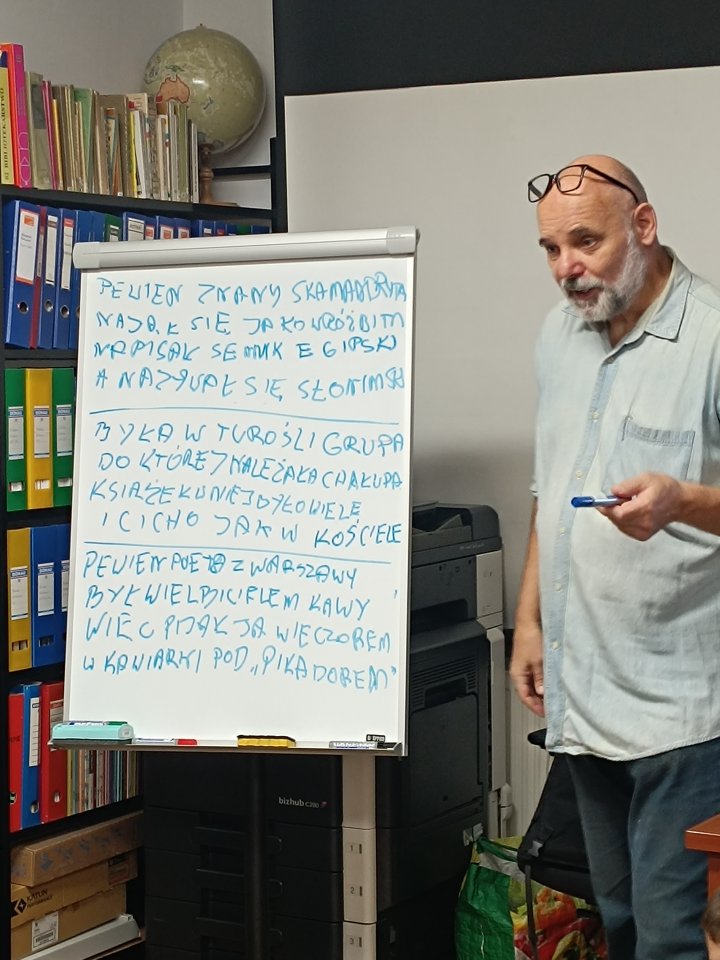 PEWIEN ZNANY SKAMANDRYTA
NAPISAŁ SENNIK EGIPSKI
A NAZYWAŁ SIĘ SŁONIMSKI
BYŁA W TUROŚLI GRUPA
DO KTÓREJ NALEŻAŁA CHAŁUPA
KSIĄŻEK W NIEJ BYŁO WIELE
I CICHO JAK W KOŚCIELE
PEWIEN POETA Z WARSZAWY
BYŁ WIELBICIELEM KAWY
WIĘC PIJAŁ JĄ WIECZOREM
W KAWIARNI POD „PIKADOREM"
bizhub C280
1
2
3
KATUN
BIBLIOTEKARSTWO